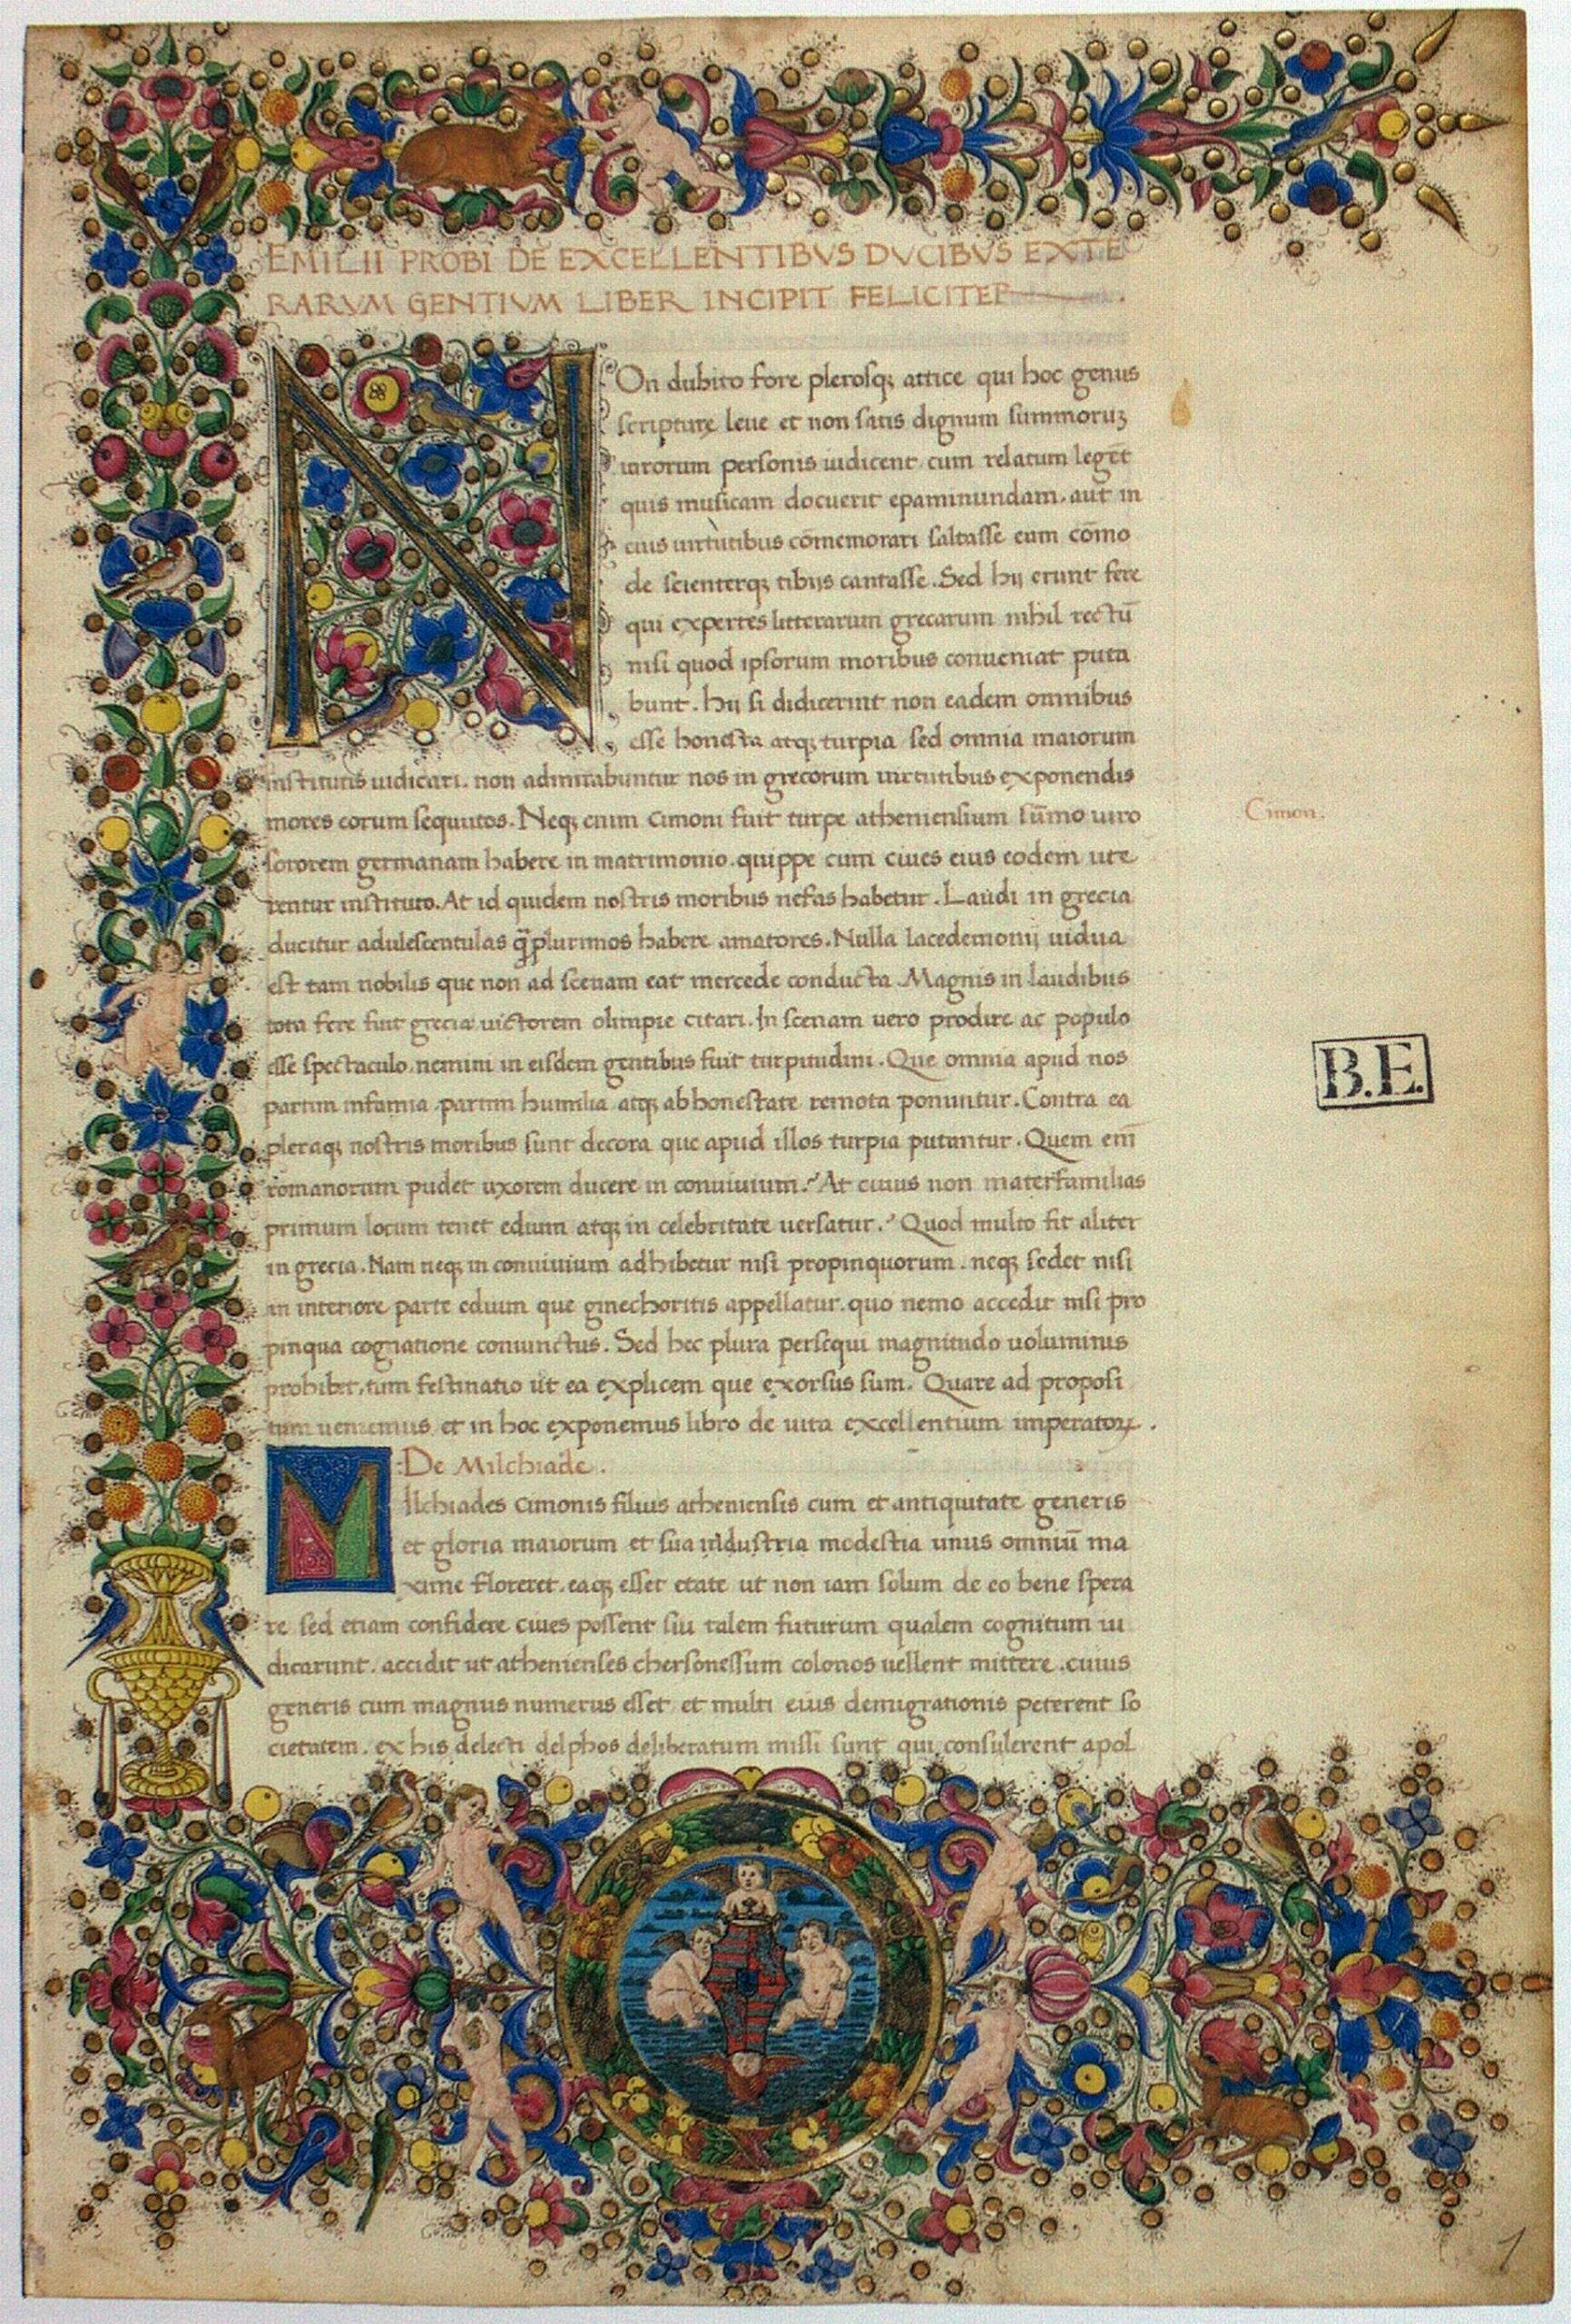 EMILII PROBI DE EXCELLENTIBVS DVCIBVS EXTE
RARVM GENTIVM LIBER INCIPIT FELICITER
NOn dubito fore plerosq; attice qui hoc genus
scripturę leue et non satis dignum summoruʒ
uirorum personis iudicent cum relatum legēt
quis musicam docuerit epaminundam. aut in
eius uirtutibus cōmemorari saltasse eum cōmo
de scienterq; tibijs cantasse. Sed hij erunt fere
qui expertes litterarum grecarum nihil rectū
nisi quod ipsorum moribus conueniat puta
bunt. hij si didicerint non eadem omnibus
esse honesta atq; turpia sed omnia maiorum
institutis iudicari. non admirabuntur nos in grecorum uirtutibus exponendis
mores eorum sequutos. Neq; enim Cimoni fuit turpe atheniensium sūmo uiro
Cimon.
sororem germanam habere in matrimonio. quippe cum ciues eius eodem ute
rentur instituto. At id quidem nostris moribus nefas habetur. Laudi in grecia
ducitur adulescentulas q̄plurimos habere amatores. Nulla lacedemonij uidua
est tam nobilis que non ad scenam eat mercede conducta. Magnis in laudibus
tota fere fuit grecia uictorem olimpie citari. In scenam uero prodire ac populo
esse spectaculo nemini in eisdem gentibus fuit turpitudini. Que omnia apud nos
partim infamia partim humilia atq; ab honestate remota ponuntur. Contra ea
pleraq; nostris moribus sunt decora que apud illos turpia putantur. Quem eni̅
romanorum pudet uxorem ducere in conuiuium? At cuius non materfamilias
primum locum tenet edium atq; in celebritate uersatur? Quod multo fit aliter
in grecia. Nam neq; in conuiuium adhibetur nisi propinquorum. neq; sedet nisi
in interiore parte edium que ginechoritis appellatur. quo nemo accedit nisi pro
pinqua cognatione coniunctus. Sed hec plura persequi magnitudo uoluminis
prohibet. tum festinatio ut ea explicem que exorsus sum. Quare ad proposi
tum ueniemus et in hoc exponemus libro de uita excellentium imperatoꝝ.
De Milchiade.
MIlchiades Cimonis filius atheniensis cum et antiquitate generis
et gloria maiorum et sua industria modestia unus omniū ma
xime floreret. eaq; esset etate ut non iam solum de eo bene spera
re sed etiam confidere ciues possent sui talem futurum qualem cognitum iu
dicarunt. accidit ut athenienses chersonessum colonos uellent mittere. cuius
generis cum magnus numerus esset et multi eius demigrationis peterent so
cietatem. ex his delecti delphos deliberatum missi sunt qui consulerent apol
B.E.
1